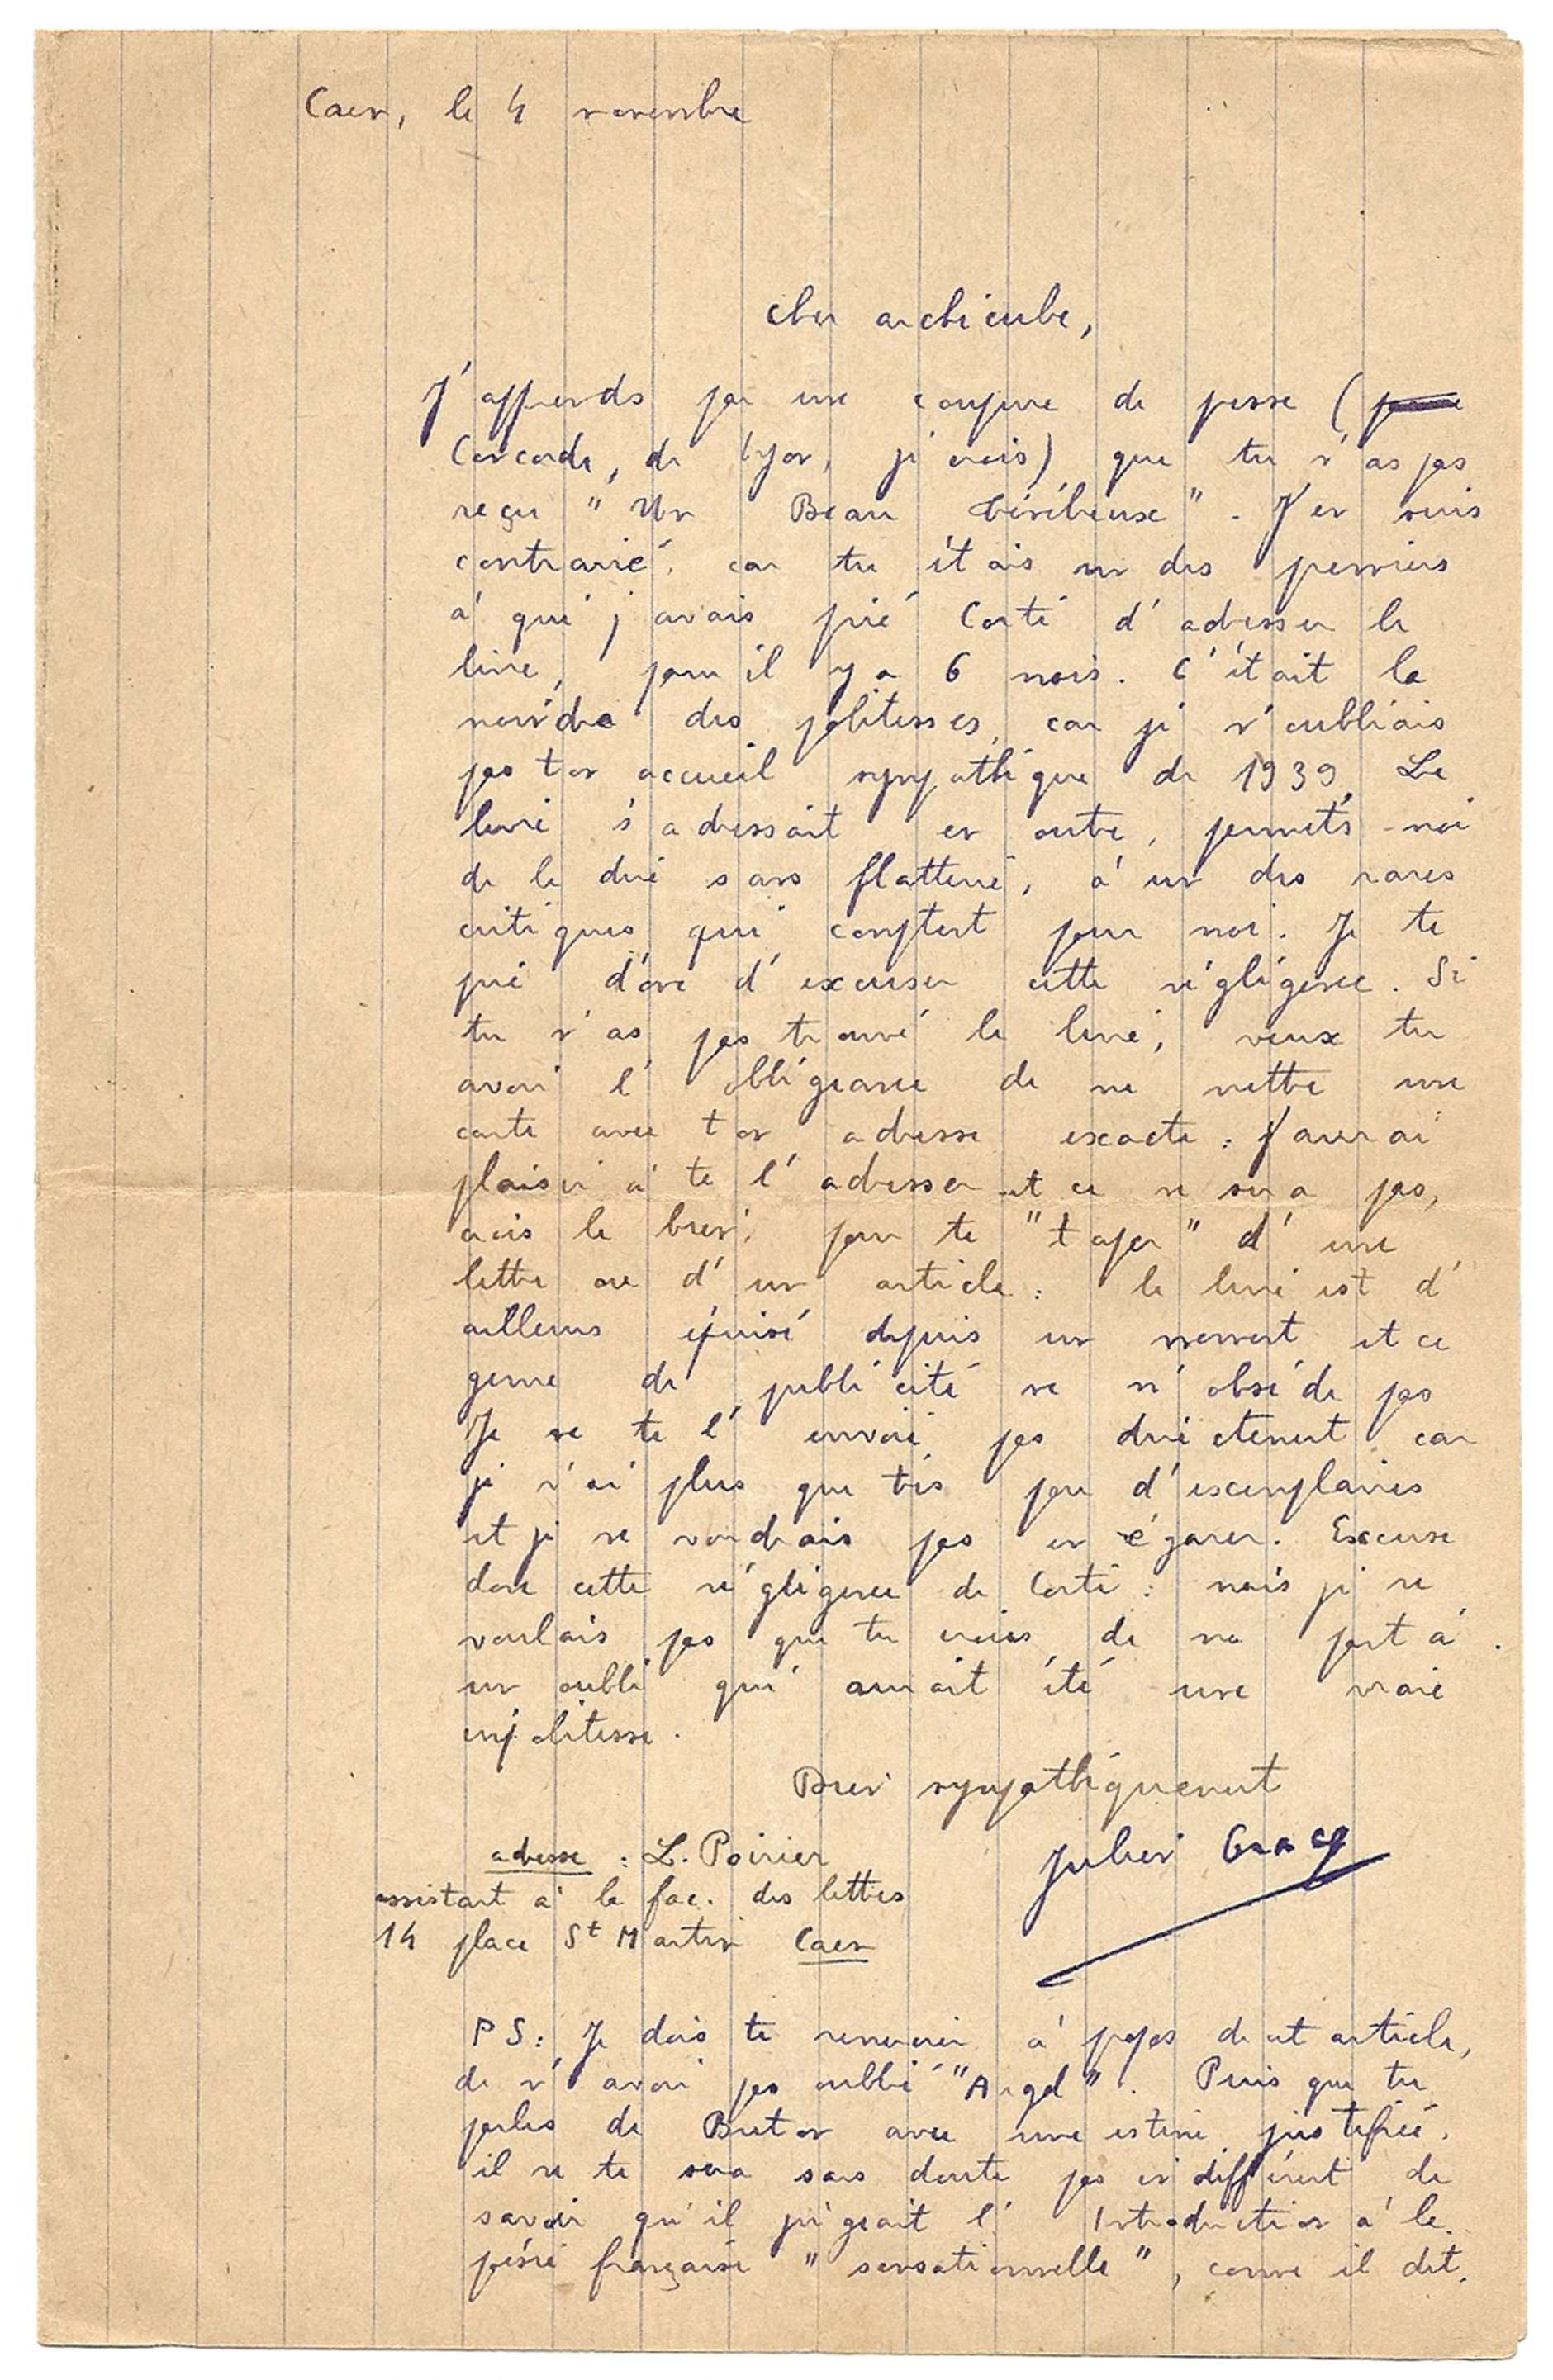 Caen, le 4 novembre
Cher archicube,
J'apprends par une coupure de presse (
Concorde, de Lyon, je crois) que tu n'as pas
reçu "Un Beau Ténébreux". J'en suis
contrarié, car tu étais un des premiers
à qui j'avais prié Corti d'adresser le
livre, paru il y a 6 mois. C'était la
moindre des politesses, car je n'oubliais
pas ton accueil sympathique de 1939. Le
livre s'adressait en outre, permets-moi
de le dire sans flatterie, à un des rares
critiques qui comptent pour moi. Je te
prie donc d'excuser cette négligence. Si
tu n'as pas trouvé le livre, veux tu
avoir l'obligeance de me mettre une
carte avec ton adresse exacte : j'aurai
plaisir à te l'adresser et ce ne sera pas,
crois le bien, pour te "taper" d'une
lettre ou d'un article : le livre est d'
ailleurs épuisé depuis un moment et ce
genre de publicité ne m'obsède pas
Je ne te l'envoie pas directement car
je n'ai plus que très peu d'exemplaires
et je ne voudrais pas en égarer. Excuse
donc cette négligence de Corti : mais je ne
voulais pas que tu croies de ma part à
un oubli qui aurait été une vraie
impolitesse.
Bien sympathiquement
Julien Gracq
adresse : L. Poirier
assistant à la fac. des lettres
14 place St Martin Caen
PS : Je dois te remercier à propos de cet article,
de n'avoir pas oublié "Argol". Puis que tu
parles de Breton avec une estime justifiée,
il ne te sera sans doute pas indifférent de
savoir qu'il jugeait l'Introduction à la
poésie française "sensationnelle", comme il dit.